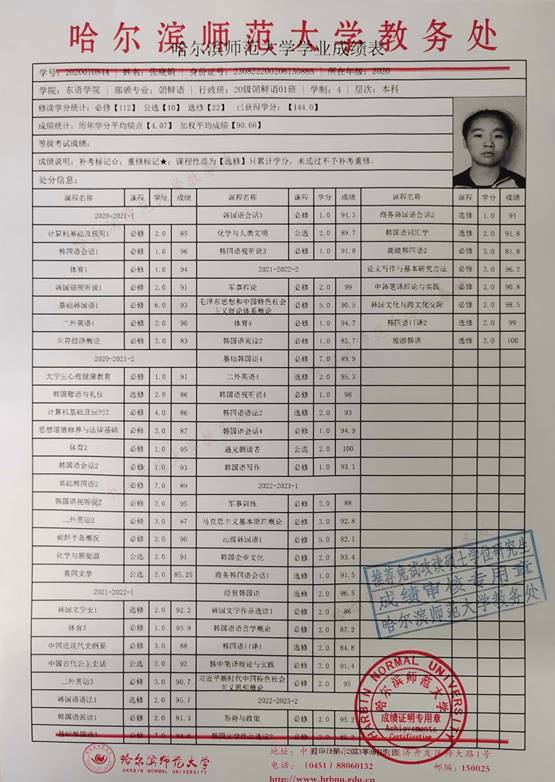 哈尔滨师范大学教务处
哈尔滨师范大学学业成绩表
学号: 2020010844 姓名: 身份证号: 所在年级: 2020
学院: 东语学院 专业: 朝鲜语 行政班: 20级朝鲜语01班 学制: 4 层次: 本科
修读学分统计: 必修【112】 公选【10】 选修【22】 已获得学分:【144.0】
成绩统计: 历年学分平均绩点【4.07】 加权平均【90.66】
等级考试成绩:
成绩说明: 补考标记☆; 重修标记★; 课程性质为【选修】只累计学分, 未通过不予补考重修。
处分信息:
课程名称 课程 学分 成绩
2020-2021-1
计算机基础及应用1 必修 2.0 85
韩国语会话1 必修 1.0 96
体育1 必修 1.0 94
韩国语视听说1 必修 2.0 91
基础韩国语1 必修 6.0 93
二外英语1 必修 2.0 90
世界经济概论 必修 2.0 83
2020-2021-2
大学生心理健康教育 必修 1.0 91
韩国敬语与礼仪 选修 2.0 86
计算机基础及应用2 必修 4.0 86
思想道德修养与法律基础 必修 3.0 87
体育2 必修 1.0 94
韩国语会话2 必修 1.0 93
基础韩国语2 必修 7.0 89
韩国语视听说2 必修 2.0 95
二外英语2 必修 3.0 87
朝鲜半岛概况 必修 2.0 90
化学与新能源 公选 2.0 91
英国文学 公选 2.0 85.25
2021-2022-1
韩国文学史1 选修 2.0 92.2
体育3 必修 1.0 95.9
中国近现代史纲要 必修 3.0 88
中国古代公主史话 公选 2.0 92
二外英语3 必修 3.0 90.7
韩国语语法1 选修 2.0 95.7
韩国语阅读1 必修 2.0 81.3
基础韩国语3 必修 7.0
课程名称 课程 学分 成绩
韩国语会话3 必修 1.0 94.3
化学与人类文明 公选 2.0 89.7
韩国语视听说3 必修 1.0 91.8
2021-2022-2
军事理论 必修 2.0 99
毛泽东思想和中国特色社会主义理论体系概论 必修 5.0 90.5
体育4 必修 1.0 94.7
韩国语阅读2 必修 1.0 85.7
基础韩国语4 必修 7.0 89.9
二外英语4 必修 2.0 95.3
韩国语视听说4 必修 1.0 98
韩国语语法2 选修 2.0 93
韩国语会话4 必修 1.0 94.9
遇见朗读者 公选 2.0 100
韩国语写作 必修 1.0 93.1
2022-2023-1
军事训练 必修 2.0 88
马克思主义基本原理概论 必修 3.0 92.8
高级韩国语1 必修 5.0 82.1
韩国企业文化 必修 2.0 93.4
商务韩国语会话1 选修 1.0 91.5
经贸韩国语 选修 2.0
韩国文学作品选读1 必修 2.0 86
韩国语语言学概论 必修 2.0 89
韩国语口译1 必修 2.0 84.8
韩中笔译理论与实践 必修 2.0 91.4
习近平新时代中国特色社会主义思想概论 必修 2.0 95
2022-2023-2
形势与政策 必修 2.0 95.2
韩国文学作品选读2 必修 2.0
课程名称 课程 学分 成绩
商务韩国语会话2 选修 1.0 94
韩国语词汇学 选修 2.0 91.8
高级韩国语2 必修 5.0 81.8
论文写作与基本研究方法 必修 2.0 96.2
中韩笔译理论与实践 必修 2.0 90.8
韩国文化与跨文化交际 必修 2.0 98.5
韩国语口译2 选修 2.0 99
旅游韩语 选修 2.0 100
推荐免试攻读硕士学位研究生
成绩审核专用章
哈尔滨师范大学教务处
HARBIN NORMAL UNIVERSITY
哈尔滨师范大学
成绩证明专用章
Achievements
Certification
哈尔滨师范大学
HARBIN NORMAL UNIVERSITY
电话: (0451) 88060132
邮编: 150025
http://www.hrbnu.edu.cn